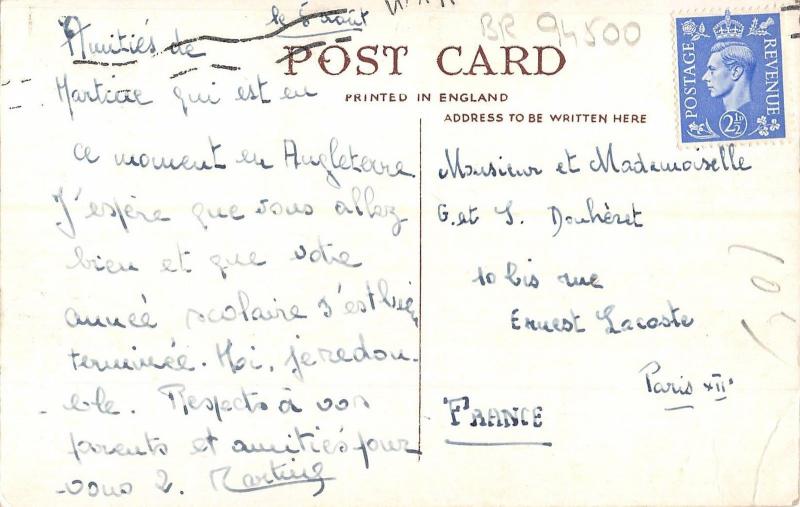 le 5 août
BR 94500
Amitiés de
POST CARD
Martine qui est en
PRINTED IN ENGLAND
ADDRESS TO BE WRITTEN HERE
POSTAGE
REVENUE
2½D
ce moment en Angleterre.
J'espère que vous allez
bien et que votre
année scolaire s'est bien
terminée. Moi, je redou-
-ble. Respects à vos
parents et amitiés pour
vous 2. Martine
Monsieur et Mademoiselle
G. et S. Douhéret
10 bis rue
Ernest Lacoste
Paris XII°
FRANCE